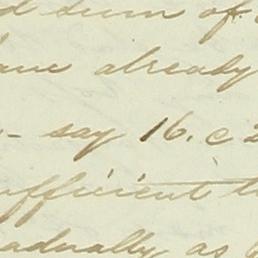 d sum of
have already
- say 16. c 2
ufficient t
adually as